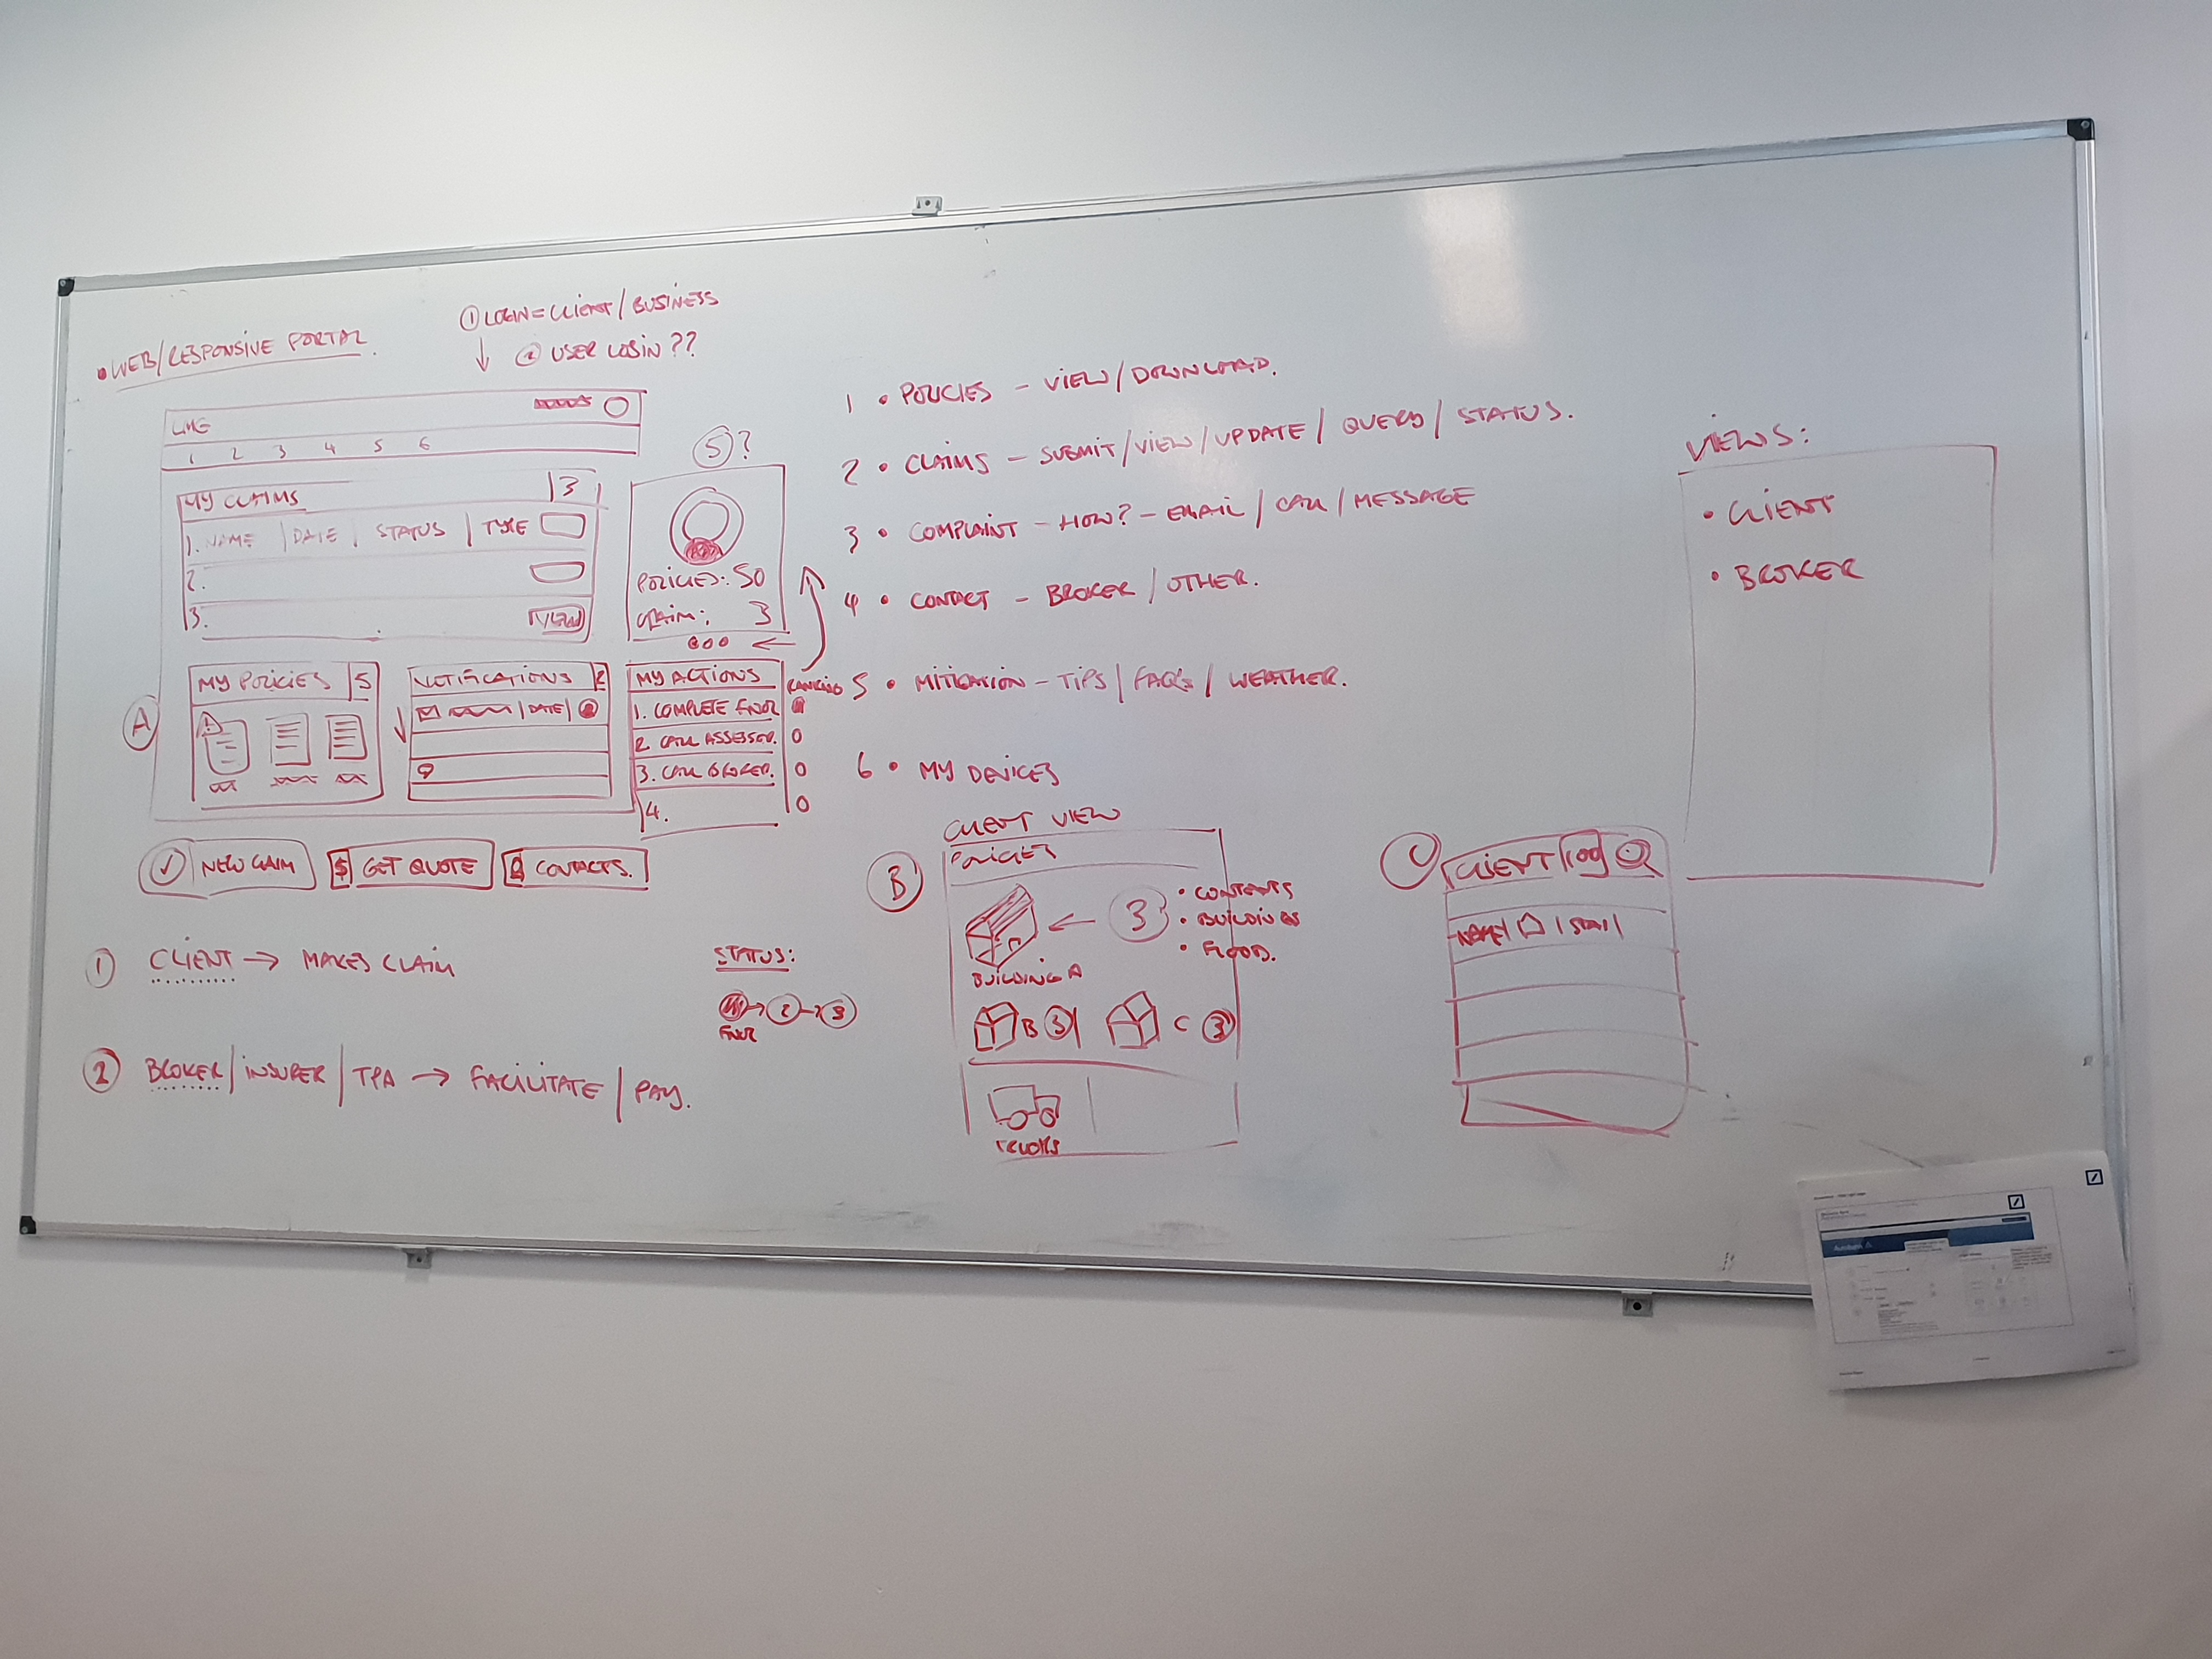 • WEB/RESPONSIVE PORTAL.
① LOGIN = CLIENT / BUSINESS
② USER LOGIN ??
LMG
1 2 3 4 5 6
MY CLAIMS 3
1. NAME | DATE | STATUS | TYPE
2.
3. VIEW
5?
POLICIES: 50
CLAIM: 3
MY POLICIES 5
NOTIFICATIONS 2
DATE
MY ACTIONS
RANKING
1. COMPLETE FNOL
2. CALL ASSESSOR.
3. CALL BROKER.
4.
A
NEW CLAIM
$ GET QUOTE
CONTACTS.
① CLIENT → MAKES CLAIM
② BROKER / INSURER / TPA → FACILITATE / PAY.
STATUS:
→ 2 → 3
FNOL
1 • POLICIES – VIEW / DOWNLOAD.
2 • CLAIMS – SUBMIT / VIEW / UPDATE / QUERY / STATUS.
3 • COMPLAINT – HOW? – EMAIL / CALL / MESSAGE
4 • CONTACT – BROKER / OTHER.
5 • MITIGATION – TIPS / FAQ's / WEATHER.
6 • MY DEVICES
B
CLIENT VIEW
POLICIES
3
• CONTENTS
• BUILDINGS
• FLOOD.
BUILDING A
B 3
C 3
TRUCKS
C
CLIENT 100
NAME
VIEWS:
• CLIENT
• BROKER